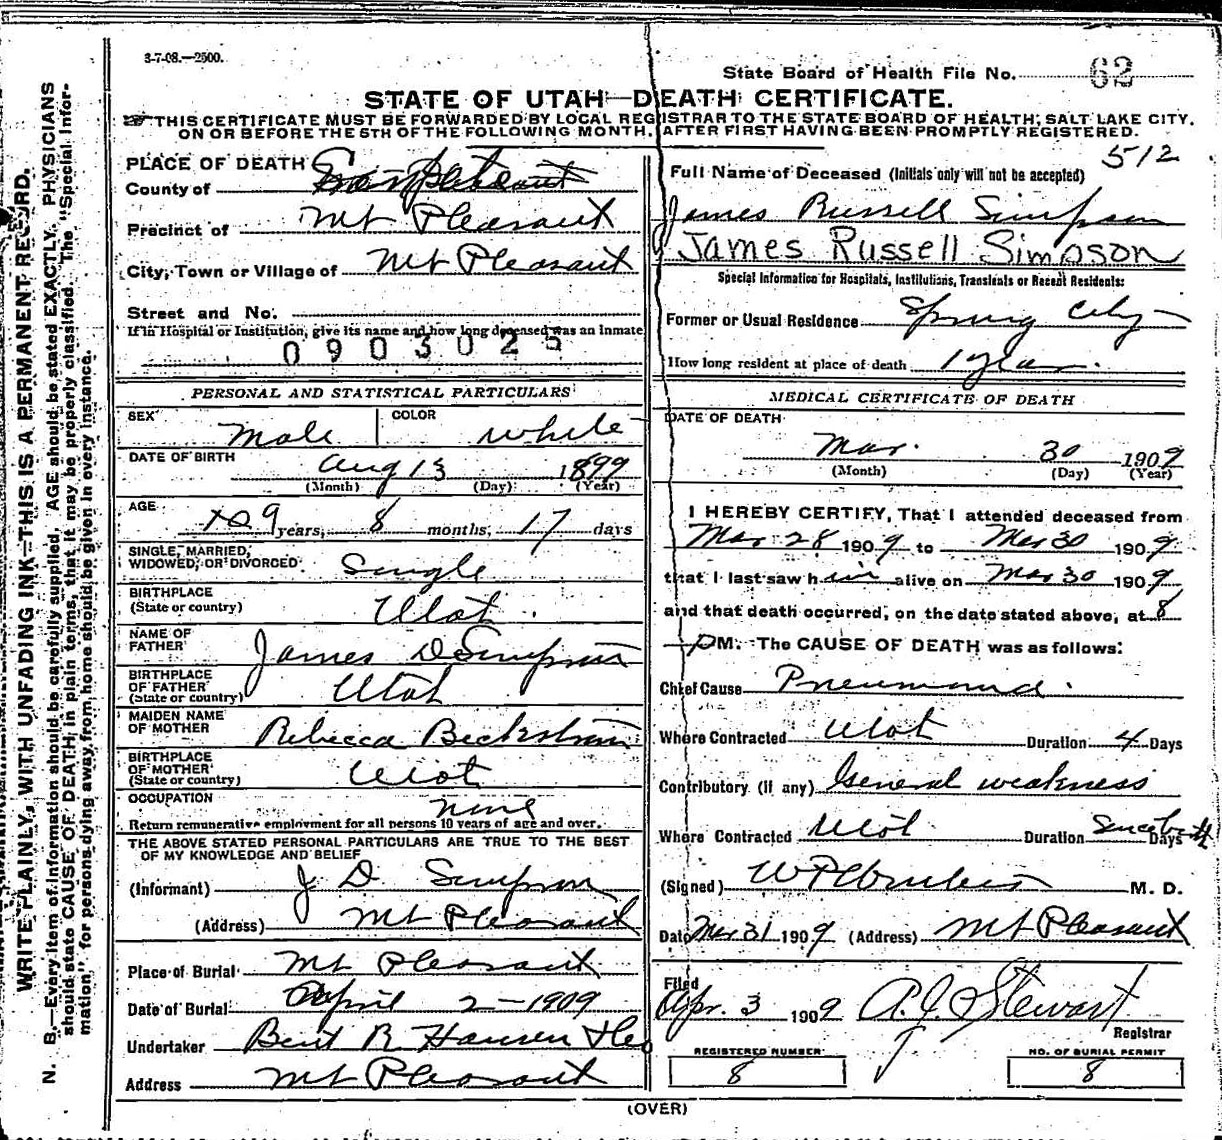 3-7-08.—2500.
State Board of Health File No. 62
STATE OF UTAH—DEATH CERTIFICATE.
THIS CERTIFICATE MUST BE FORWARDED BY LOCAL REGISTRAR TO THE STATE BOARD OF HEALTH, SALT LAKE CITY,
ON OR BEFORE THE 5TH OF THE FOLLOWING MONTH, AFTER FIRST HAVING BEEN PROMPTLY REGISTERED.
WRITE PLAINLY, WITH UNFADING INK—THIS IS A PERMANENT RECORD.
N. B.—Every item of information should be carefully supplied. AGE should be stated EXACTLY. PHYSICIANS
should state CAUSE OF DEATH in plain terms, that it may be properly classified. The "Special Infor-
mation" for persons dying away from home should be given in every instance.
PLACE OF DEATH
County of
Precinct of Mt Pleasant
City, Town or Village of Mt Pleasant
Street and No.
If in Hospital or Institution, give its name and how long deceased was an inmate
0903025
PERSONAL AND STATISTICAL PARTICULARS
SEX Male
COLOR White
DATE OF BIRTH Aug 13 1899
(Month) (Day) (Year)
AGE 9 years, 8 months, 17 days
SINGLE, MARRIED,
WIDOWED, OR DIVORCED Single
BIRTHPLACE
(State or country) Utah
NAME OF
FATHER James D Simpson
BIRTHPLACE
OF FATHER
(State or country) Utah
MAIDEN NAME
OF MOTHER Rebecca Beckstrom
BIRTHPLACE
OF MOTHER
(State or country) Utah
OCCUPATION none
Return remunerative employment for all persons 10 years of age and over.
THE ABOVE STATED PERSONAL PARTICULARS ARE TRUE TO THE BEST
OF MY KNOWLEDGE AND BELIEF
(Informant) J D Simpson
(Address) Mt Pleasant
Place of Burial Mt Pleasant
Date of Burial April 2-1909
Undertaker Bent R Hansen
Address Mt Pleasant
512
Full Name of Deceased (Initials only will not be accepted)
James Russell Simpson
James Russell Simpson
Special Information for Hospitals, Institutions, Transients or Recent Residents:
Former or Usual Residence Spring City
How long resident at place of death 1 year.
MEDICAL CERTIFICATE OF DEATH
DATE OF DEATH
Mar. 30 1909
(Month) (Day) (Year)
I HEREBY CERTIFY, That I attended deceased from
Mar 28 1909 to Mar 30 1909
that I last saw him alive on Mar 30 1909
and that death occurred, on the date stated above, at 8
PM. The CAUSE OF DEATH was as follows:
Chief Cause Pneumonia.
Where Contracted Utah Duration 4 Days
Contributory (if any) General weakness
Where Contracted Utah Duration Since birth Days
(Signed) M. D.
Date Mar 31 1909 (Address) Mt Pleasant
Filed
Apr. 3 1909 A. J. Stewart
Registrar
REGISTERED NUMBER
8
NO. OF BURIAL PERMIT
8
(OVER)